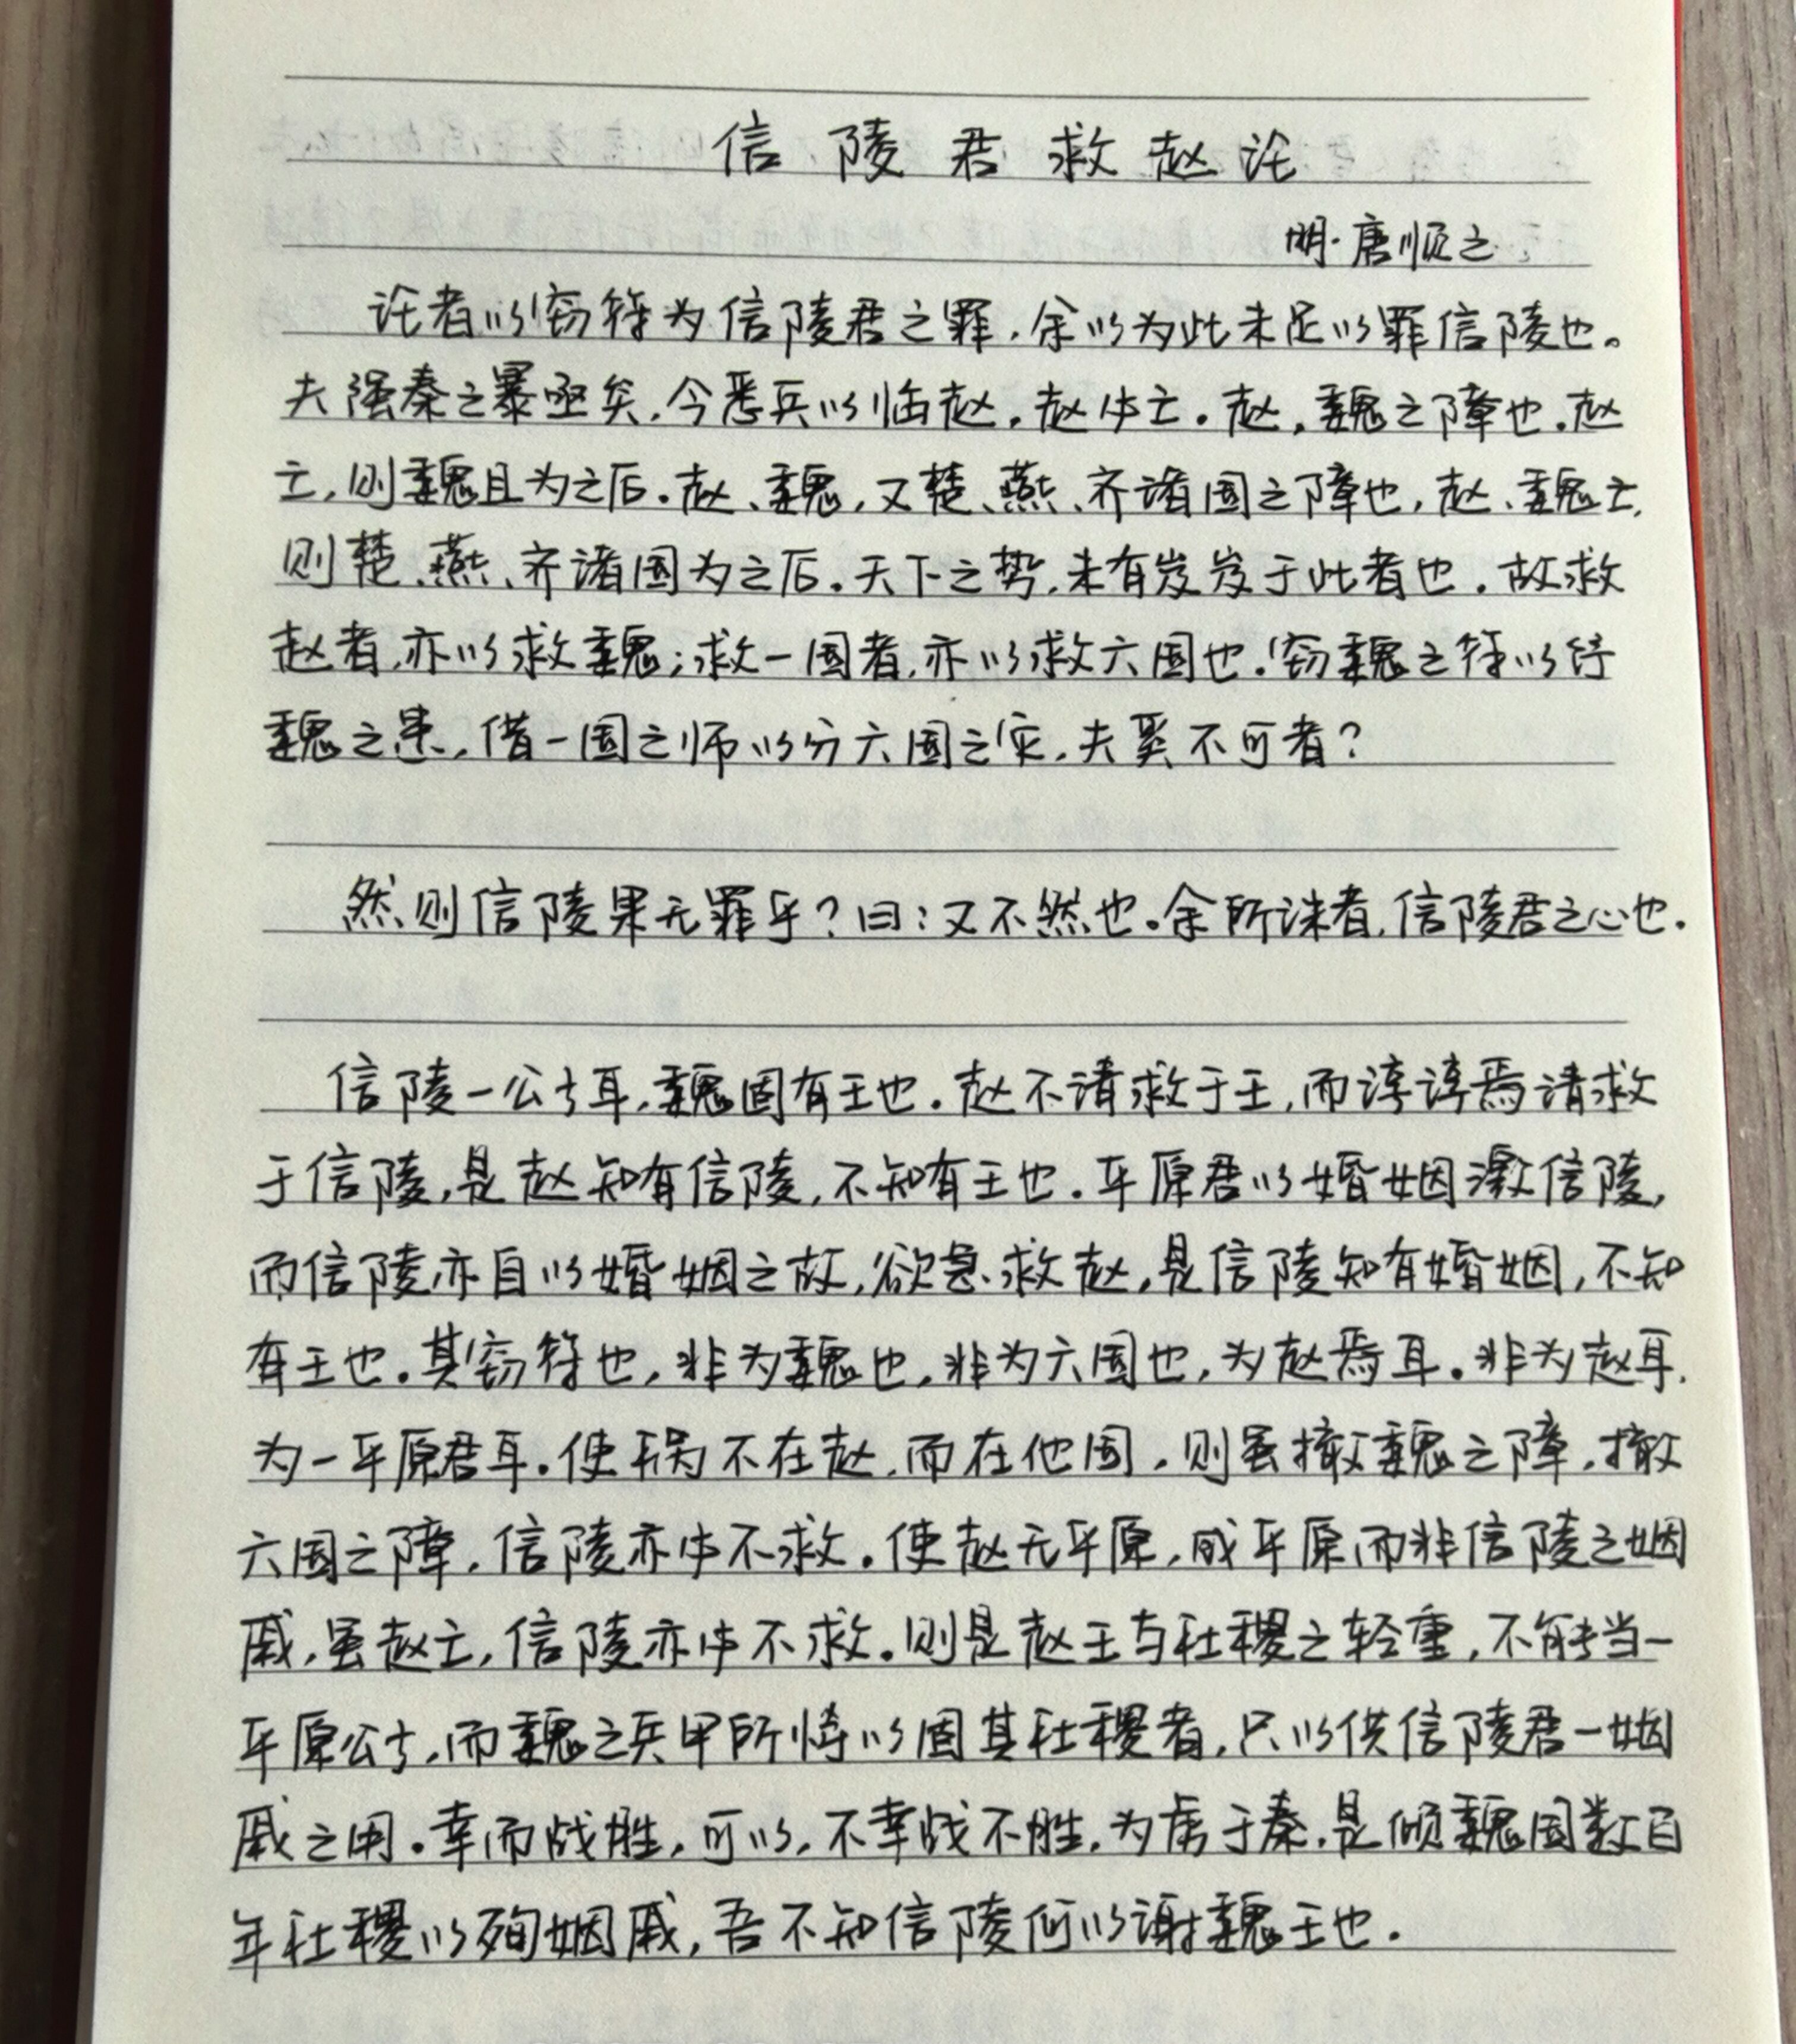 信陵君救赵论
明·唐顺之
论者以窃符为信陵君之罪,余以为此未足以罪信陵也。
夫强秦之暴亟矣,今悉兵以临赵,赵必亡。赵,魏之障也,赵
亡,则魏且为之后。赵、魏,又楚、燕、齐诸国之障也,赵、魏亡,
则楚、燕、齐诸国为之后。天下之势,未有岌岌于此者也。故救
赵者,亦以救魏;救一国者,亦以救六国也。窃魏之符以纾
魏之患,借一国之师以分六国之灾,夫奚不可者?
然则信陵果无罪乎?曰:又不然也。余所诛者,信陵君之心也。
信陵一公子耳,魏固有王也。赵不请救于王,而谆谆焉请救
于信陵,是赵知有信陵,不知有王也。平原君以婚姻激信陵,
而信陵亦自以婚姻之故,欲急救赵,是信陵知有婚姻,不知
有王也。其窃符也,非为魏也,非为六国也,为赵焉耳。非为赵耳,
为一平原君耳。使祸不在赵,而在他国,则虽撤魏之障,撤
六国之障,信陵亦必不救。使赵无平原,或平原而非信陵之姻
戚,虽赵亡,信陵亦必不救。则是赵王与社稷之轻重,不能当一
平原公子,而魏之兵甲所恃以固其社稷者,只以供信陵君一姻
戚之用。幸而战胜,可以,不幸战不胜,为虏于秦,是倾魏国数百
年社稷以殉姻戚,吾不知信陵何以谢魏王也。